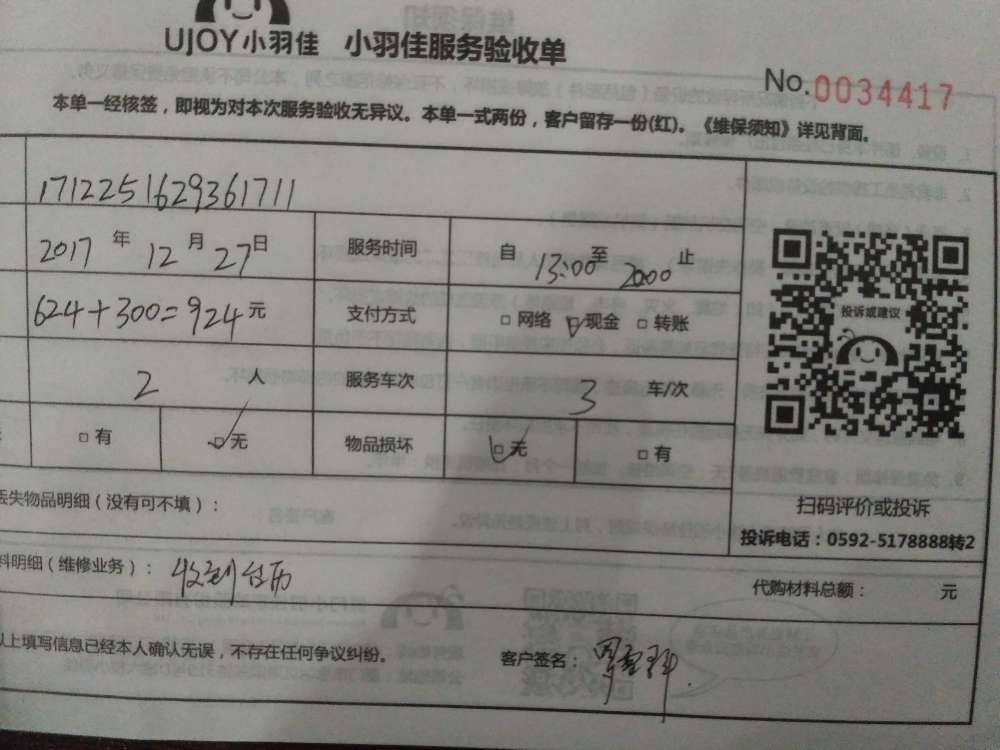 UJOY小羽佳 小羽佳服务验收单
No.0034417
本单一经核签，即视为对本次服务验收无异议。本单一式两份，客户留存一份(红)。《维保须知》详见背面。
1712251629361711
2017 年 12 月 27 日 服务时间 自 13:00 至 20:00 止
624+300=924 元 支付方式 □网络 □现金 □转账
投诉或建议
2 人 服务车次 3 车/次
□有 □无 物品损坏 □无 □有
丢失物品明细（没有可不填）：
扫码评价或投诉
投诉电话：0592-5178888转2
料明细（维修业务）： 收到台历 代购材料总额： 元
以上填写信息已经本人确认无误，不存在任何争议纠纷。 客户签名：